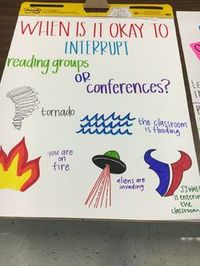 WHEN IS IT OKAY TO
INTERRUPT
reading groups
OR
conferences?
tornado
the classroom
is flooding
you are
on
fire
aliens are
invading
JJ Watt
is entering
the
classroom